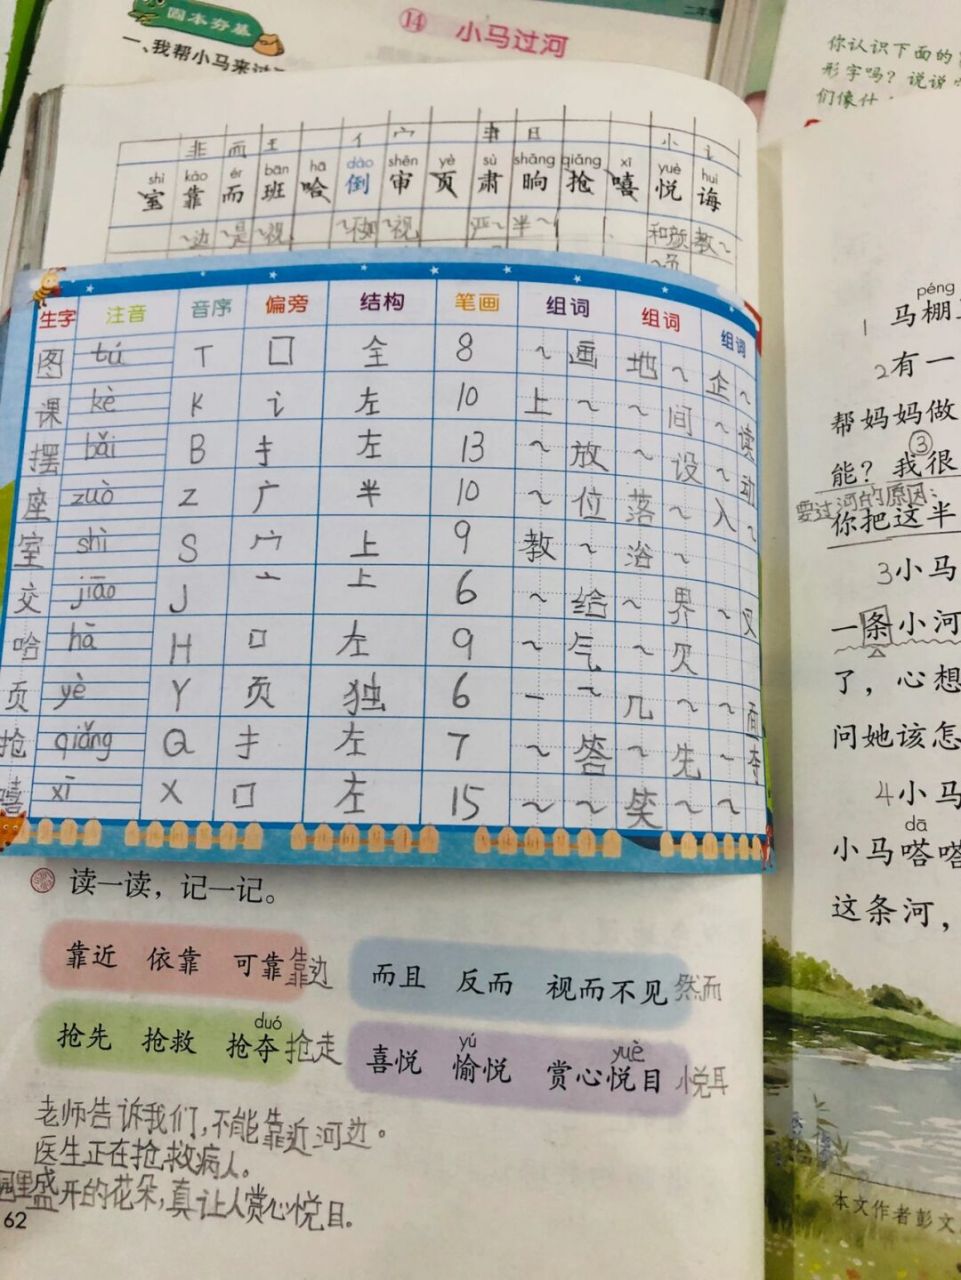 固本夯基
⑭ 小马过河
二年
一、我帮小马来过
你认识下面的
形字吗？说说
们像什
非 而 王 亻 宀 肀 日 忄 讠
shì kào ér bān hā dào shěn yè sù shǎng qiǎng xī yuè huǐ
室 靠 而 班 哈 倒 审 页 肃 晌 抢 嘻 悦 诲
~边 ~是 ~视 不如 ~视 严~ 半~ 和颜 教~
生字 注音 音序 偏旁 结构 笔画 组词 组词 组词
图 tú T 囗 全 8 ~画 地~ 企~
课 kè K 讠 左 10 上~ ~间 ~读
摆 bǎi B 扌 左 13 ~放 ~设 ~动
座 zuò Z 广 半 10 ~位 落~ 入~
室 shì S 宀 上 9 教~ 浴~
交 jiāo J 亠 上 6 ~给 ~界 ~叉
哈 hā H 口 左 9 ~气 ~欠
页 yè Y 页 独 6 一~ 几~ ~面
抢 qiǎng Q 扌 左 7 ~答 ~先 ~夺
嘻 xī X 口 左 15 ~~笑~~
读一读，记一记。
靠近 依靠 可靠 靠边
而且 反而 视而不见 然而
duó
抢先 抢救 抢夺 抢走
yú yuè
喜悦 愉悦 赏心悦目 悦耳
老师告诉我们，不能靠近河边。
医生正在抢救病人。
园里盛开的花朵，真让人赏心悦目。
62
péng
1 马棚
2 有一
帮妈妈做
③
能？我很
要过河的原因：
你把这半
3 小马
一条小河
了，心想
问她该怎
4 小马
dā
小马嗒嗒
这条河，
本文作者彭文